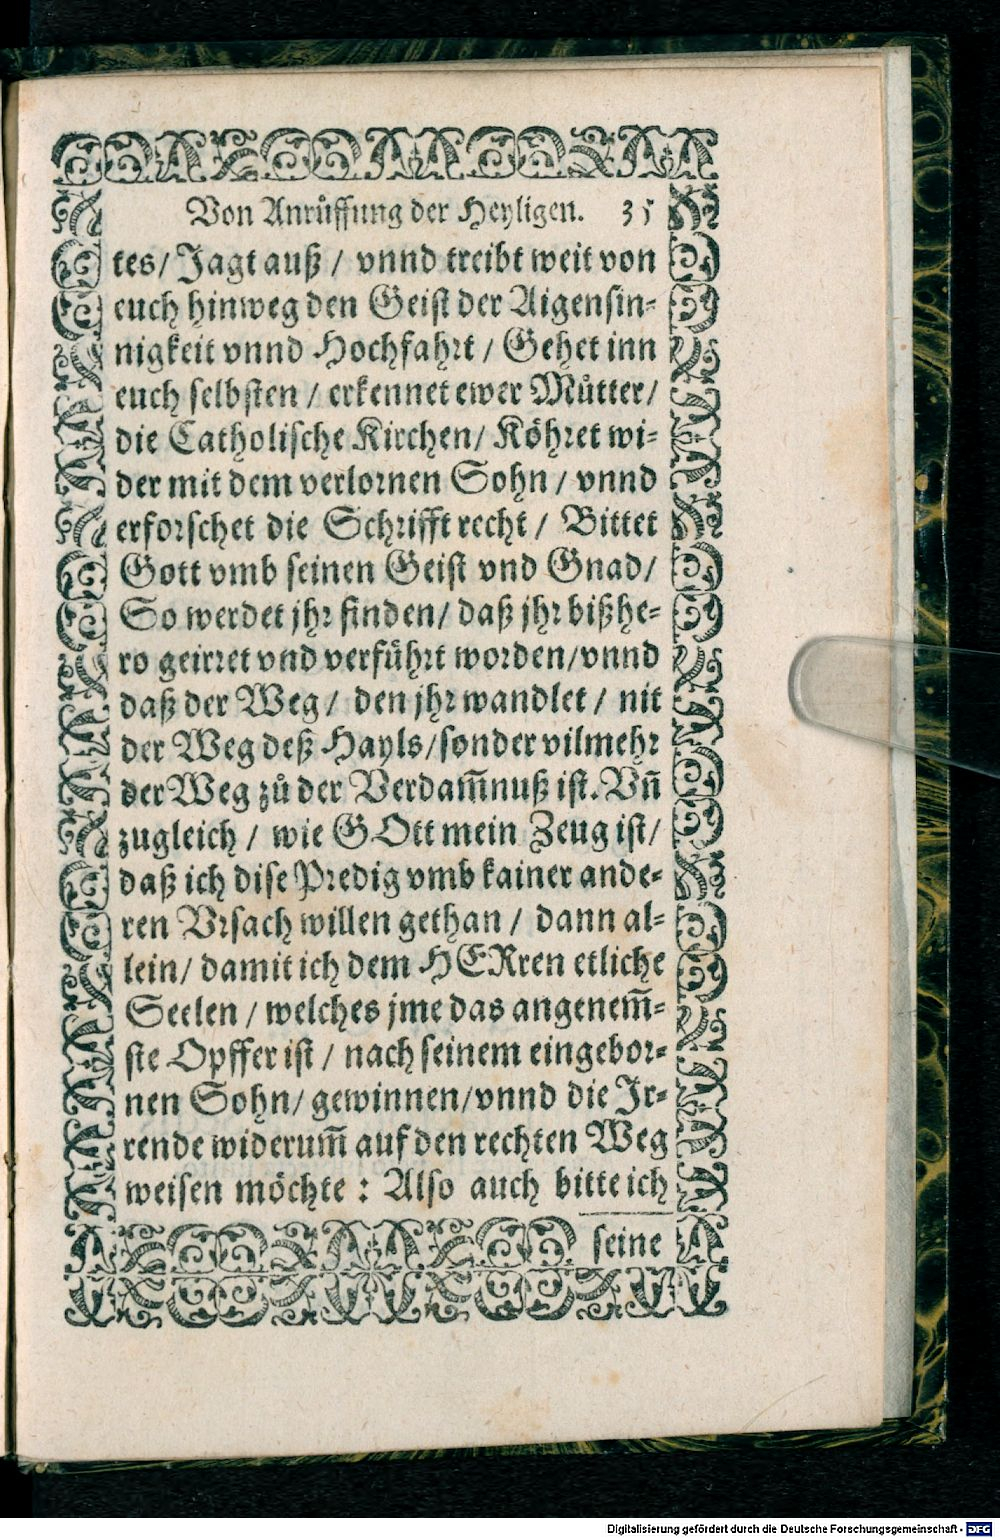 Von Anrůffung der Heyligen. 35
tes/ Jagt auß / vnnd treibt weit von
euch hinweg den Geist der Aigensin-
nigkeit vnnd Hochfahrt / Gehet inn
euch selbsten / erkennet ewer Můtter/
die Catholische Kirchen/ Köhret wi-
der mit dem verlornen Sohn / vnnd
erforschet die Schrifft recht / Bittet
Gott vmb seinen Geist vnd Gnad/
So werdet jhr finden/ daß jhr bißhe-
ro geirret vnd verführt worden/vnnd
daß der Weg / den jhr wandlet / nit
der Weg deß Hayls/sonder vilmehr
der Weg zů der Verdam̃nuß ist. Vñ
zugleich / wie GOtt mein Zeug ist/
daß ich dise Predig vmb kainer ande-
ren Vrsach willen gethan / dann al-
lein/ damit ich dem HERren etliche
Seelen / welches jme das angenem̃-
ste Opffer ist / nach seinem eingebor-
nen Sohn/ gewinnen/vnnd die Jr-
rende widerum̃ auf den rechten Weg
weisen möchte : Also auch bitte ich
seine
Digitalisierung gefördert durch die Deutsche Forschungsgemeinschaft - DFG